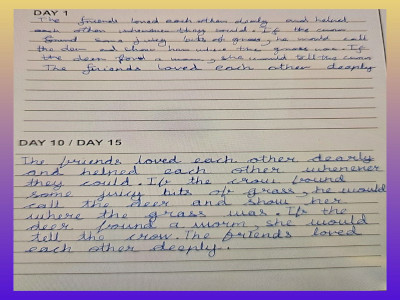 DAY 1
The friends loved each other and helped
each other whenever they would. If the crow
found some juicy bits of grass, he would call
the deer and show her where the grass was. If
the deer a worm, she would tell the crow
The friends loved each other deeply
DAY 10 / DAY 15
The friends loved each other dearly
and helped each other whenever
they could. If the crow found
some juicy bits of grass, he would
call the deer and show her
where the grass was. If the
deer found a worm, she would
tell the crow. The friends loved
each other deeply.